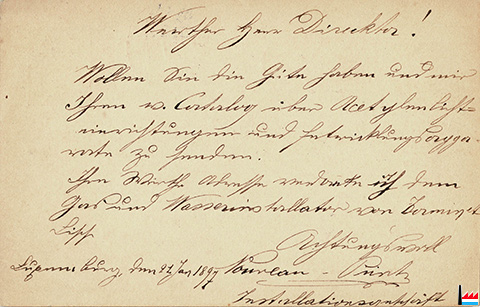 Werther Herr Direcktor!
Wollen Sie die Güte haben und mir
Ihren w. Catalog über Acetylenlicht-
einrichtungen und Entwicklungsappa-
rate zu senden.
Ihre Werthe Adresse verdanke ich dem
Gas und Wasserinstallator von
Achtungsvoll
Luxemburg, den 22 Jan 1897
Installationsgeschäft